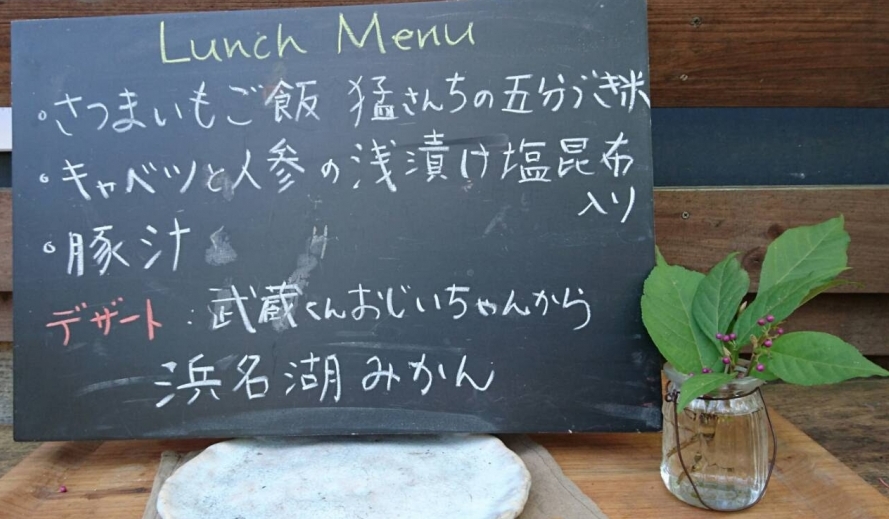 Lunch Menu
・さつまいもご飯 猛さんちの五分づき米
・キャベツと人参の浅漬け塩昆布
入り
・豚汁
デザート：武蔵くんおじいちゃんから
浜名湖みかん